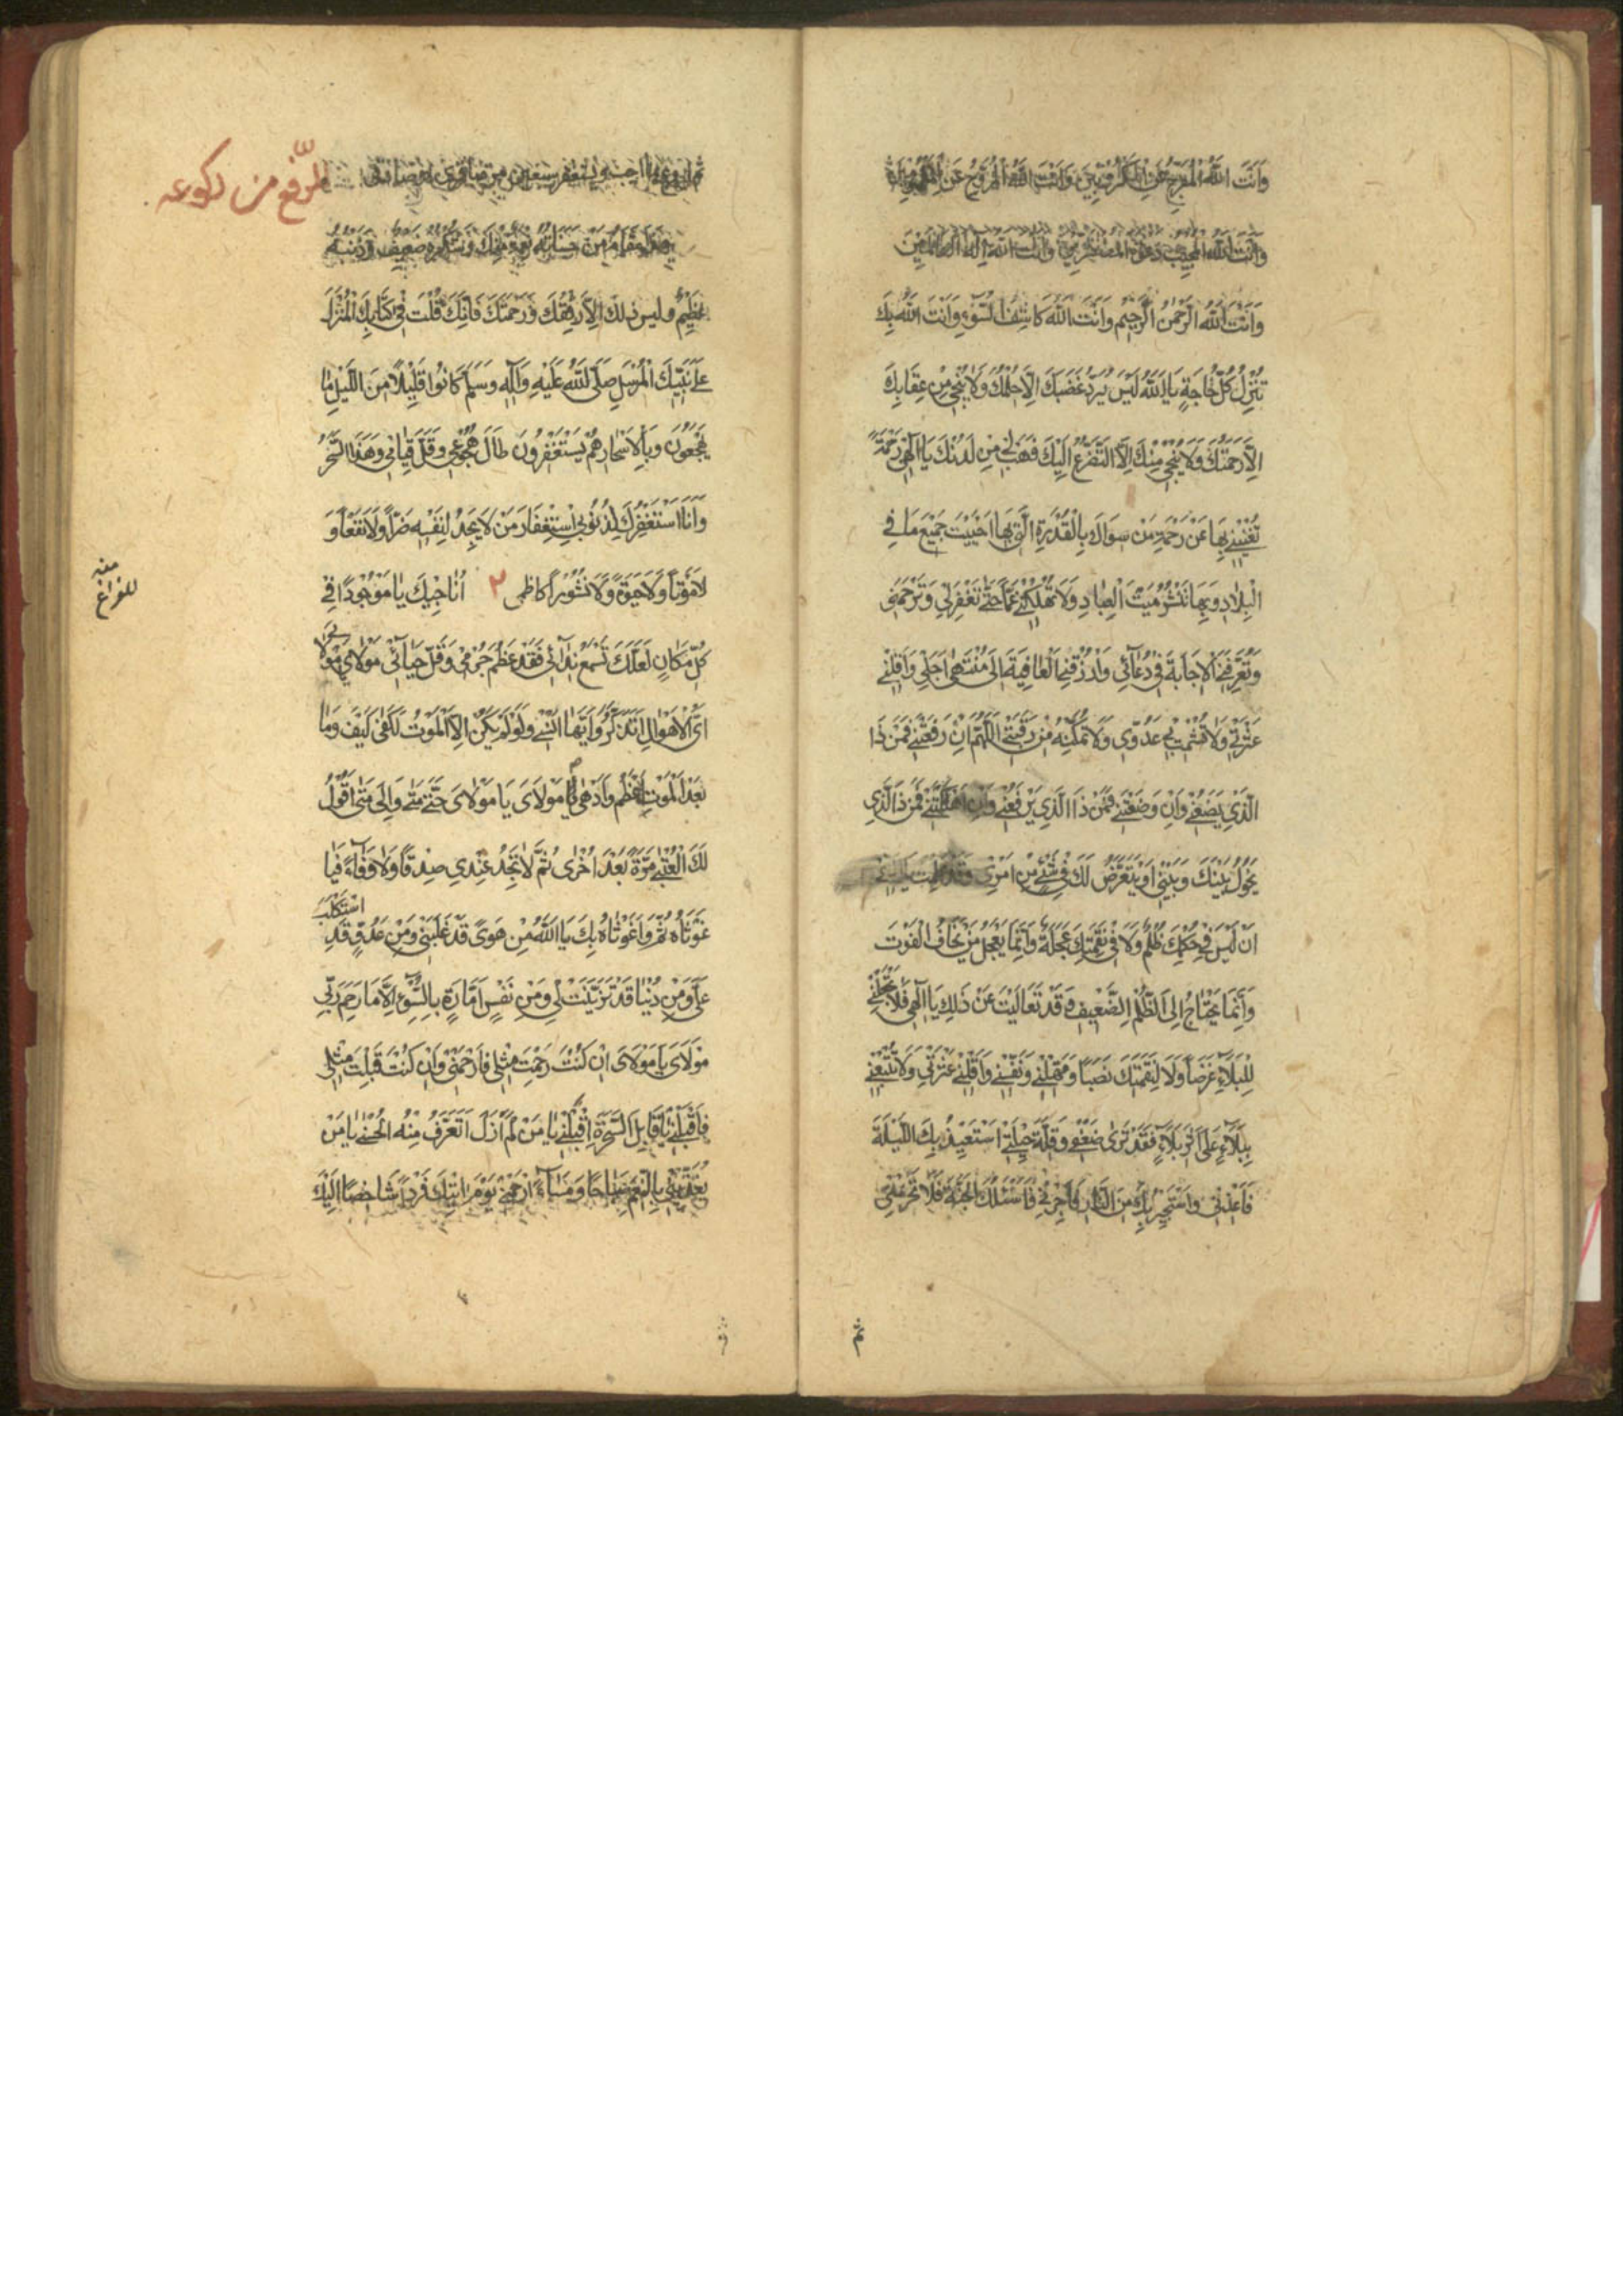 وَاَنْتَ اللّٰهُ الْمُفَرِّجُ عَنِ الْمَكْرُوبِينَ وَاَنْتَ اللّٰهُ الْمُرَوِّحُ عَنِ الْمَغْمُومِينَ
وَاَنْتَ اللّٰهُ الْمُجِيبُ دَعْوَةَ الْمُضْطَرِّينَ وَاَنْتَ اللّٰهُ اِلٰهُ الْعَالَمِينَ
وَاَنْتَ اللّٰهُ الرَّحْمٰنُ الرَّحِيمُ وَاَنْتَ اللّٰهُ كَاشِفُ السُّوٓءِ وَاَنْتَ اللّٰهُ بِكَ
تُنْزَلُ كُلُّ حَاجَةٍ يَا اَللّٰهُ لَيْسَ يَرُدُّ غَضَبَكَ اِلَّا حِلْمُكَ وَلَا يُنْجِي مِنْ عِقَابِكَ
اِلَّا رَحْمَتُكَ وَلَا يُنْجِي مِنْكَ اِلَّا التَّضَرُّعُ اِلَيْكَ فَهَبْ لِي مِنْ لَدُنْكَ يَا اِلٰهِي رَحْمَةً
تُغْنِينِي بِهَا عَنْ رَحْمَةِ مَنْ سِوَاكَ بِالْقُدْرَةِ الَّتِي بِهَا اَحْيَيْتَ جَمِيعَ مَا فِي
الْبِلَادِ وَبِهَا تَنْشُرُ مَيْتَ الْعِبَادِ وَلَا تُهْلِكْنِي غَمًّا حَتّٰى تَغْفِرَ لِي وَتَرْحَمَنِي
وَتُعَرِّفَنِي الْاِجَابَةَ فِي دُعَآئِي وَارْزُقْنِي الْعَافِيَةَ اِلٰى مُنْتَهٰى اَجَلِي وَاَقِلْنِي
عَثْرَتِي وَلَا تُشْمِتْ بِي عَدُوِّي وَلَا تُمَكِّنْهُ مِنْ رَقَبَتِي اَللّٰهُمَّ اِنْ رَفَعْتَنِي فَمَنْ ذَا
الَّذِي يَضَعُنِي وَاِنْ وَضَعْتَنِي فَمَنْ ذَا الَّذِي يَرْفَعُنِي وَاِنْ اَهْلَكْتَنِي فَمَنْ ذَا الَّذِي
يَحُولُ بَيْنَكَ وَبَيْنِي اَوْ يَتَعَرَّضُ لَكَ فِي شَيْءٍ مِنْ اَمْرِي وَقَدْ عَلِمْتُ يَا اِلٰهِي
اَنْ لَيْسَ فِي حُكْمِكَ ظُلْمٌ وَلَا فِي نَقِمَتِكَ عَجَلَةٌ وَاِنَّمَا يَعْجَلُ مَنْ يَخَافُ الْفَوْتَ
وَاِنَّمَا يَحْتَاجُ اِلَى الظُّلْمِ الضَّعِيفُ وَقَدْ تَعَالَيْتَ عَنْ ذٰلِكَ يَا اِلٰهِي فَلَا تَجْعَلْنِي
لِلْبَلَآءِ غَرَضًا وَلَا لِنَقِمَتِكَ نَصَبًا وَمَهِّلْنِي وَنَفِّسْنِي وَاَقِلْنِي عَثْرَتِي وَلَا تُتْبِعْنِي
بِبَلَآءٍ عَلٰى اَثَرِ بَلَآءٍ فَقَدْ تَرٰى ضَعْفِي وَقِلَّةَ حِيلَتِي اَسْتَعِيذُ بِكَ اللَّيْلَةَ
فَاَعِذْنِي وَاَسْتَجِيرُ بِكَ مِنَ النَّارِ فَاَجِرْنِي وَاَسْئَلُكَ الْجَنَّةَ فَلَا تَحْرِمْنِي
ثم
ثم ادع بما احببت واستغفر سبعين مرة
رفع من ركوعه
هٰذَا مَقَامُ مَنْ حَسَنَاتُهُ نِعْمَةٌ مِنْكَ وَشُكْرُهُ ضَعِيفٌ وَذَنْبُهُ
عَظِيمٌ وليس لذلك اِلَّا رِفْقُكَ وَرَحْمَتُكَ فَاِنَّكَ قُلْتَ فِي كِتَابِكَ الْمُنْزَلِ
عَلٰى نَبِيِّكَ الْمُرْسَلِ صَلَّى اللّٰهُ عَلَيْهِ وَاٰلِهِ وَسَلَّمَ كَانُوا قَلِيلًا مِنَ اللَّيْلِ مَا
يَهْجَعُونَ وَبِالْاَسْحَارِ هُمْ يَسْتَغْفِرُونَ طَالَ هُجُوعِي وَقَلَّ قِيَامِي وَهٰذَا السَّحَرُ
وَاَنَا اَسْتَغْفِرُكَ لِذُنُوبِي اسْتِغْفَارَ مَنْ لَا يَجِدُ لِنَفْسِهِ ضَرًّا وَلَا نَفْعًا وَ
لَا مَوْتًا وَلَا حَيٰوةً وَلَا نُشُورًا كاظمى ٢ اُنَاجِيكَ يَا مَوْجُودًا فِي
منه
للفراغ
كُلِّ مَكَانٍ لَعَلَّكَ تَسْمَعُ نِدَآئِي فَقَدْ عَظُمَ جُرْمِي وَقَلَّ حَيَآئِي مَوْلَايَ يَا مَوْلَايَ
اَيَّ الْاَهْوَالِ اَتَذَكَّرُ وَاَيَّهَا اَنْسٰى وَلَوْ لَمْ يَكُنْ اِلَّا الْمَوْتُ لَكَفٰى كَيْفَ وَمَا
بَعْدَ الْمَوْتِ اَعْظَمُ وَاَدْهٰى يَا مَوْلَايَ يَا مَوْلَايَ حَتّٰى مَتٰى وَاِلٰى مَتٰى اَقُولُ
لَكَ الْعُتْبٰى مَرَّةً بَعْدَ اُخْرٰى ثُمَّ لَا تَجِدُ عِنْدِي صِدْقًا وَلَا وَفَآءً فَيَا
غَوْثَاهُ ثُمَّ وَاغَوْثَاهُ بِكَ يَا اَللّٰهُ مِنْ هَوًى قَدْ غَلَبَنِي وَمِنْ عَدُوٍّ قَدِ اسْتَكْلَبَ
عَلَيَّ وَمِنْ دُنْيَا قَدْ تَزَيَّنَتْ لِي وَمِنْ نَفْسٍ اَمَّارَةٍ بِالسُّوٓءِ اِلَّا مَا رَحِمَ رَبِّي
مَوْلَايَ يَا مَوْلَايَ اِنْ كُنْتَ رَحِمْتَ مِثْلِي فَارْحَمْنِي وَاِنْ كُنْتَ قَبِلْتَ مِثْلِي
فَاقْبَلْنِي يَا قَابِلَ السَّحَرَةِ اِقْبَلْنِي يَا مَنْ لَمْ اَزَلْ اَتَعَرَّفُ مِنْهُ الْحُسْنٰى يَا مَنْ
يُغَذِّينِي بِالنِّعَمِ صَبَاحًا وَمَسَآءً اِرْحَمْنِي يَوْمَ اٰتِيكَ فَرْدًا شَاخِصًا اِلَيْكَ